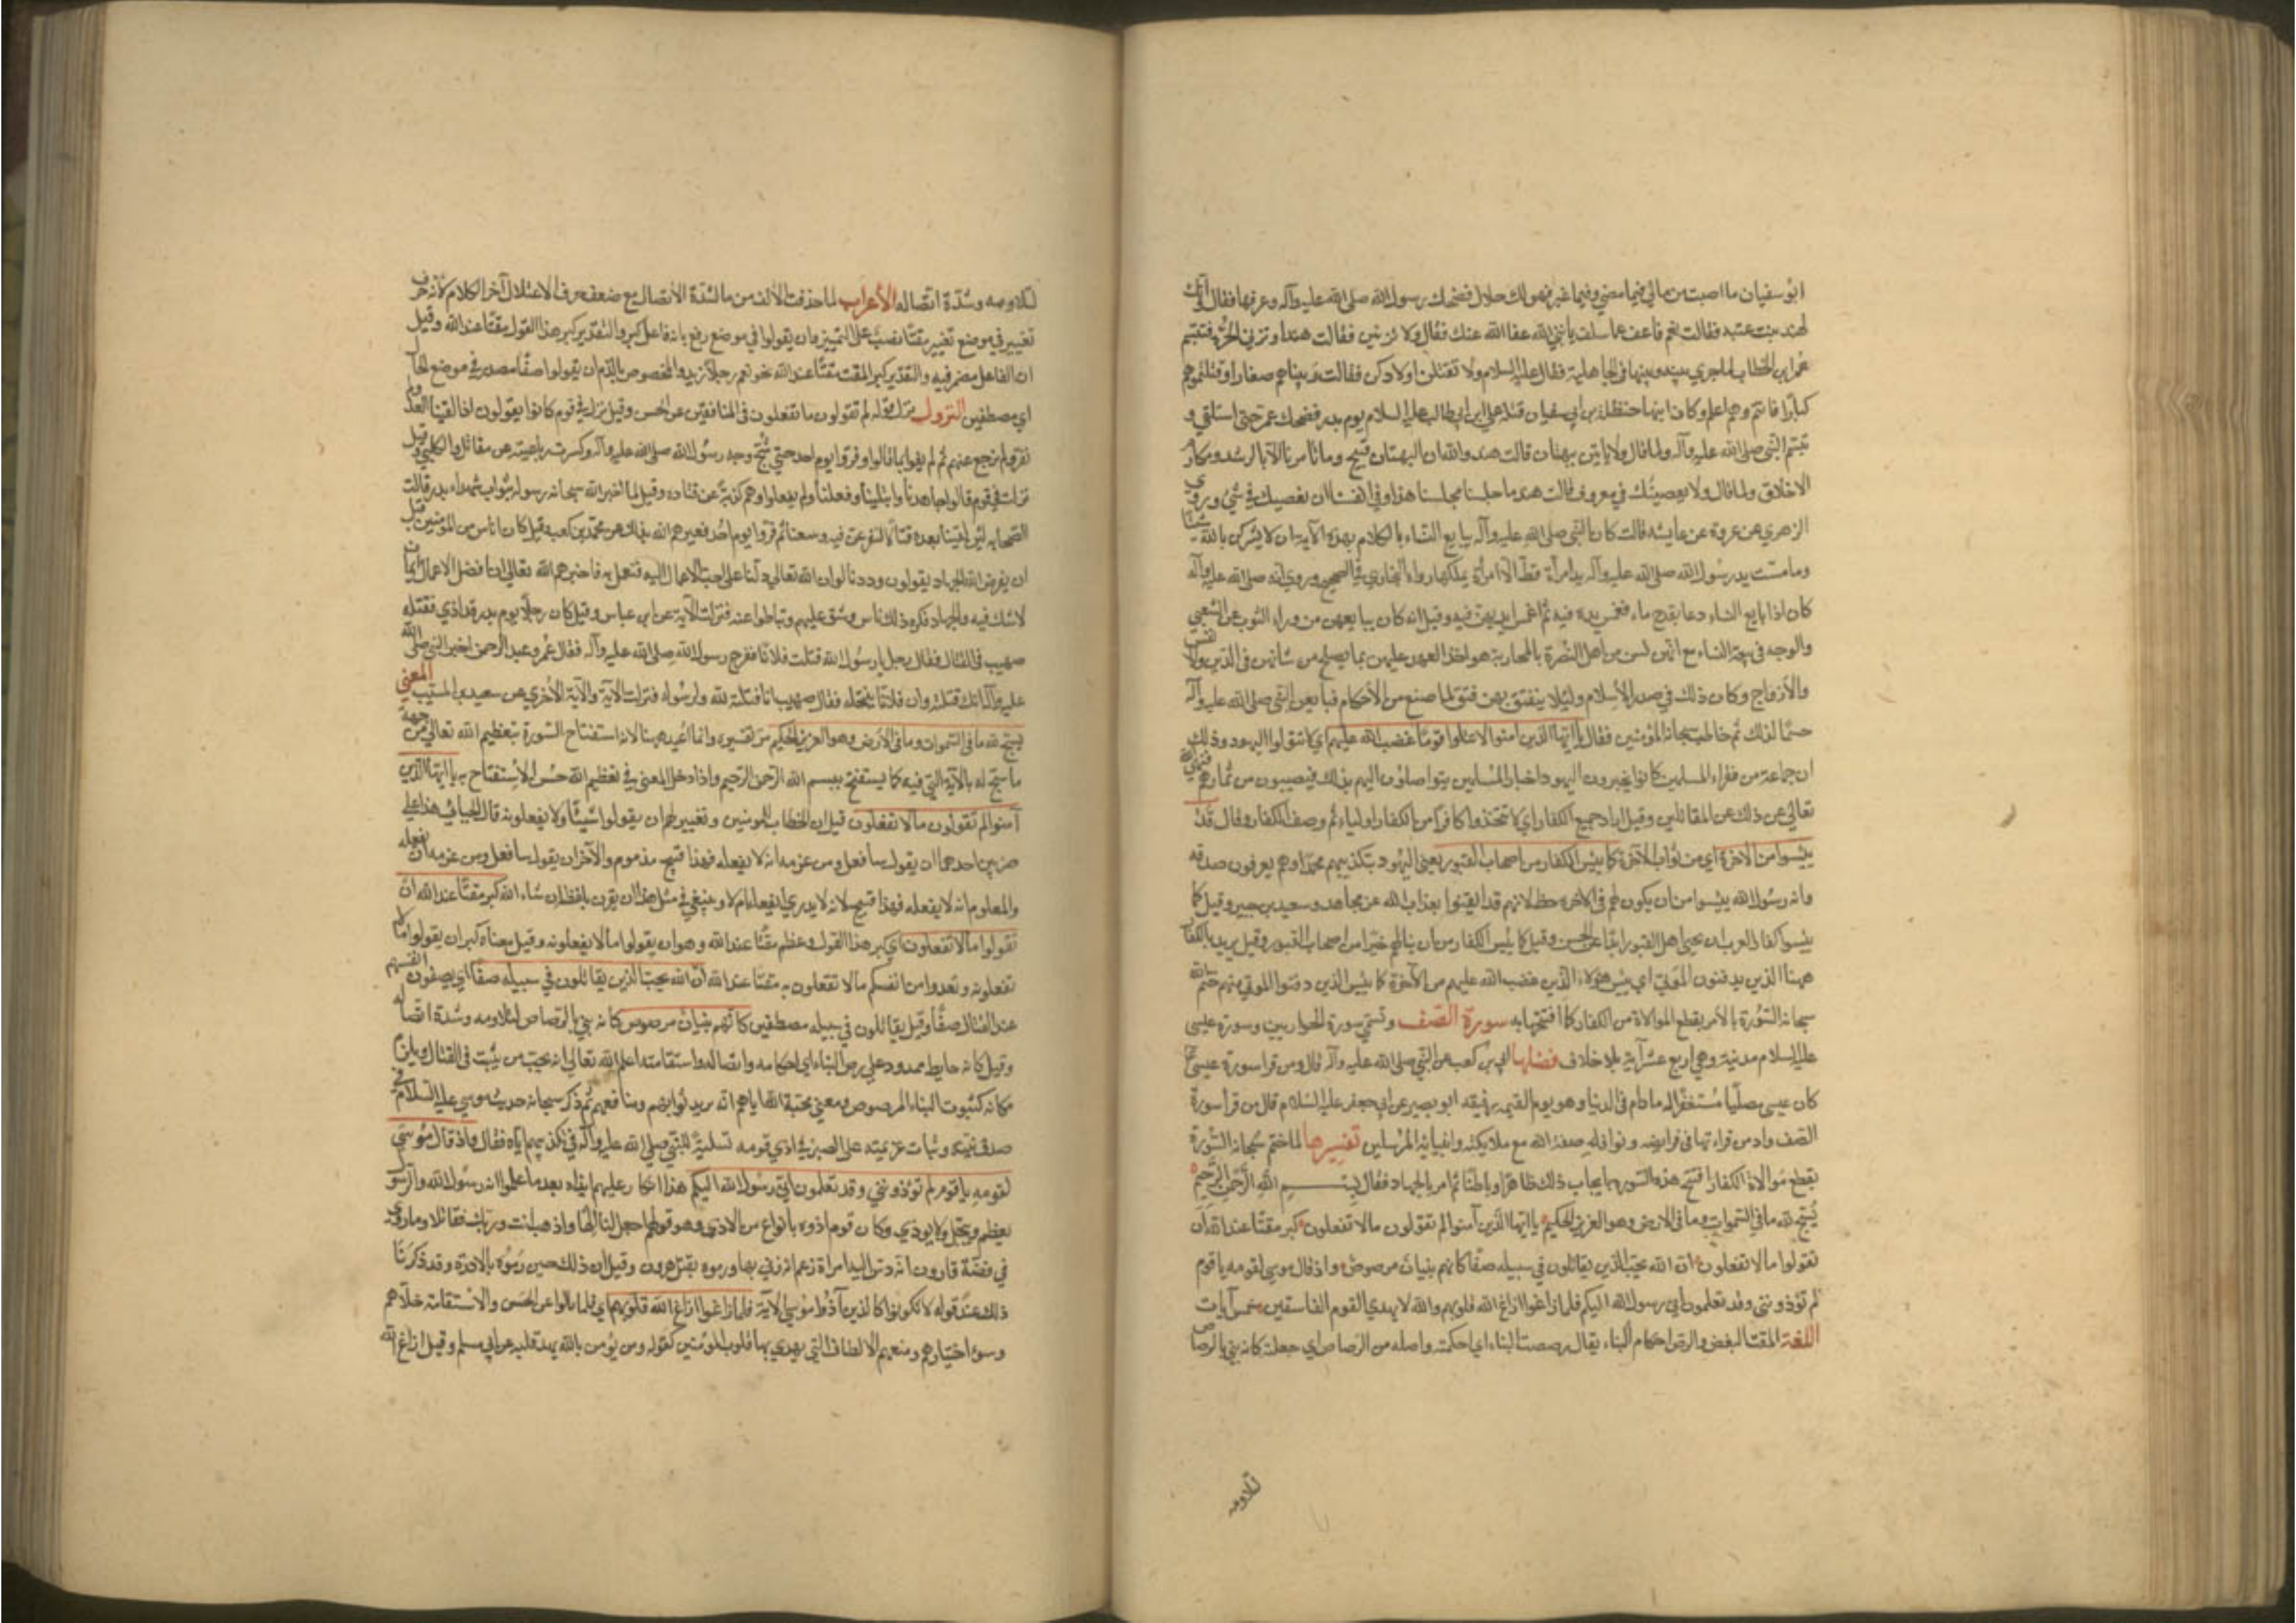 ابو سفيان ما اصبت من مالي فيما مضي وفيما غبر فهو لك حلال فضحك رسول الله صلى الله عليه وآله وعرفها فقال وانك
لهند بنت عتبة فقالت نعم فاعف عما سلف يا نبي الله عفا الله عنك فقال ولا تزنين فقالت هند او تزني الحرة فتبسم
عمر ابن الخطاب لما جري بينه وبينها في الجاهلية فقال عليه السلام ولا تقتلن اولادكن فقالت هند ربيناهم صغارا وقتلتموهم
كبارا فانتم وهم اعلم وكان ابنها حنظلة بن ابي سفيان قتله علي ابن ابي طالب عليه السلام يوم بدر فضحك عمر حتى استلقي و
تبسم النبي صلى الله عليه وآله ولما قال ولا ياتين ببهتان قالت هند والله ان البهتان قبيح وما تامرنا الا بالرشد ومكارم
الاخلاق ولما قال ولا يعصينك في معروف قالت هند ما جلسنا مجلسنا هذا وفي انفسنا ان نعصيك في شئ وروي
الزهري عن عروة عن عايشه قالت كان النبي صلى الله عليه وآله يبايع النساء بالكلام بهذه الآية ان لا يشركن بالله شيئا
وما مست يد رسول الله صلى الله عليه وآله يد امرأة قط الا امرأة يملكها رواه البخاري في الصحيح وروي انه صلى الله عليه وآله
كان اذا بايع النساء دعا بقدح ماء فغمس يده فيه ثم اغمسن ايديهن فيه وقيل انه كان يبايعهن من وراء الثوب عن الشعبي
والوجه في بيعة النساء مع انهن لسن من اهل النصرة بالمحاربة هو اخذ العهد عليهن بما يصلح من شانهن في الدين والانفس
والازواج وكان ذلك في صدر الاسلام ولئلا ينفتق بهن فتق لما صنع من الاحكام فبايعهن النبي صلى الله عليه وآله
حسما لذلك ثم خاطب سبحانه المؤمنين فقال يا ايها الذين امنوا لا تتولوا قوما غضب الله عليهم اي لا تتولوا اليهود وذلك
ان جماعة من فقراء المسلمين كانوا يخبرون اليهود اخبار المسلمين يتواصلون اليهم بذلك فيصيبون من ثمارهم فنهى الله
تعالى عن ذلك عن المقاتلين وقيل اراد جميع الكفار اي لا تتخذوا كافرا من الكفار اولياء ثم وصف الكفار وقال قد
يئسوا من الاخرة اي من ثواب الآخرة كما يئس الكفار من اصحاب القبور يعني اليهود بتكذيبهم محمدا وهم يعرفون صدقه
وانه رسول الله يئسوا من ان يكون لهم في الاخرة حظ لانهم قد ايقنوا بعذاب الله عن مجاهد وسعيد بن جبير وقيل كما
يئسوا كفار العرب ان يحيى اهل القبور ابدا عن الحسن وقيل كما يئس الكفار من ان ينالهم خير من اصحاب القبور وقيل يريد بالكفار
ههنا الذين يدفنون الموتى اي يئس هؤلاء الذين غضب الله عليهم من الآخرة كما يئس الذين دفنوا الموتى منهم ختم الله
سبحانه السورة بالأمر بقطع الموالاة من الكفار كما افتتحها به سورة الصف وتسمي سورة الحواريين وسورة عيسى
عليه السلام مدنية وهي اربع عشر آية بلا خلاف فضلها ابي بن كعب عن النبي صلى الله عليه وآله قال ومن قرا سورة عيسى
كان عيسى مصليا مستغفرا له ما دام في الدنيا وهو يوم القيمة رفيقه ابو بصير عن ابي جعفر عليه السلام قال من قرأ سورة
الصف وادمن قراءتها في فرايضه ونوافله صفه الله مع ملايكته وانبيائه المرسلين تفسيرها لما ختم سبحانه السورة
بقطع موالاة الكفار افتتح هذه السورة بايجاب ذلك ظاهرا وباطنا ثم امر بالجهاد فقال بسم الله الرحمن الرحيم
يسبح لله ما في السموات وما في الارض وهو العزيز الحكيم يا ايها الذين آمنوا لم تقولون ما لا تفعلون كبر مقتا عند الله ان
تقولوا ما لا تفعلون ان الله يحب الذين يقاتلون في سبيله صفا كانهم بنيان مرصوص واذ قال موسى لقومه يا قوم
لم تؤذونني وقد تعلمون اني رسول الله اليكم فلما زاغوا ازاغ الله قلوبهم والله لا يهدي القوم الفاسقين خمس آيات
اللغة المقت البغض والرص احكام البناء يقال رصصت البناء اي احكمته واصله من الرصاص اي جعلته كانه بني بالرصاص
لتلاومه
لتلاومه وشدة اتصاله الأعراب لما حذفت الالف من ما لشدة الاتصال مع ضعف حرف الاعتلال آخر الكلام لأنه حرف
تغيير في موضع تغيير مقتا نصب على التمييز وان يقولوا في موضع رفع بانه فاعل كبر والتقدير كبر هذا القول مقتا عند الله وقيل
ان الفاعل مضمر فيه والتقدير كبر المقت مقتا عند الله نحو نعم رجلا زيد والمخصوص بالذم ان يقولوا صفا مصدر في موضع الحال
اي مصطفين النزول نزل قوله لم تقولون ما تفعلون في المنافقين عن الحسن وقيل نزل في قوم كانوا يقولون اذا لقينا العدو لم
نفر ولم نرجع عنهم ثم لم يفوا بما قالوا وفروا يوم احد حتى شج وجه رسول الله صلى الله عليه وآله وكسرت رباعيته عن مقاتل والكلبي وقيل
نزلت في قوم قالوا جاهدنا وابلينا وفعلنا ولم يفعلوا وهم كذبة عن قتاده وقيل لما اخبر الله سبحانه رسوله بثواب شهداء بدر قالت
الصحابه لئن لقينا بعده قتالا لنفرغن فيه وسعنا ثم فروا يوم احد فعيرهم الله بذلك عن محمد بن كعب وقيل كان اناس من المؤمنين قبل
ان يفرض الله الجهاد يقولون وددنا لو ان الله تعالى دلنا على احب الاعمال اليه فنعمل به فاخبرهم الله تعالى ان افضل الاعمال ايمان
لا شك فيه والجهاد فكره ذلك ناس وشق عليهم وتباطوا عنه فنزلت الآية عن ابن عباس وقيل كان رجلا يوم بدر قد اذي فقتله
صهيب في القتال فقال رجل يا رسول الله قتلت فلانا ففرح رسول الله صلى الله عليه وآله فقال عمر وعبد الرحمن اخبر النبي صلى الله
عليه وآله انك قتلته وان فلانا ينتحله فقال صهيب انا قتلته لله ولرسوله فنزلت الآية والآية الأخري عن سعيد بن المسيب المعني
يسبح لله ما في السموات وما في الارض وهو العزيز الحكيم مر تفسيره وانما اعيد ههنا لانه استفتاح السورة بتعظيم الله تعالى من جهة
ما سبح له بالآية التي فيه كما يستفتح ببسم الله الرحمن الرحيم واذا دخل المعنى في تعظيم الله حسن الاستفتاح به يا ايها الذين
آمنوا لم تقولون ما لا تفعلون قيل ان الخطاب للمؤمنين وتعيير لهم ان يقولوا شيئا ولا يفعلونه قال الجبائي هذا علي
ضربين احدهما ان يقول سافعل ومن عزمه انه لا يفعله فهذا قبيح مذموم والآخر ان يقول سافعل ومن عزمه ان يفعله
والمعلوم انه لا يفعله فهذا قبيح لانه لا يدري ايفعله ام لا وينبغي في مثل هذا ان يقرن بلفظ ان شاء الله كبر مقتا عند الله ان
تقولوا ما لا تفعلون اي كبر هذا القول وعظم مقتا عند الله وهو ان يقولوا ما لا يفعلونه وقيل معناه كبر ان يقولوا ما لا
تفعلونه وتعدوا من انفسكم ما لا تفعلون به مقتا عند الله ان الله يحب الذين يقاتلون في سبيله صفا اي يصفون انفسهم
عند القتال صفا وقيل يقاتلون في سبيله مصطفين كانهم بنيان مرصوص كانه بني بالرصاص لتلاومه وشدة اتصاله
وقيل كانه حايط ممدود على رص البناء اي احكامه واتصاله واستقامته اعلم الله تعالى انه يحب من يثبت في القتال ويلزم
مكانه كثبوت البناء المرصوص ومعنى محبة الله اياهم انه يريد ثوابهم ومنافعهم ثم ذكر سبحانه حديث موسى عليه السلام في
صدق نيته وثبات عزيمته على الصبر في اذي قومه تسلية للنبي صلى الله عليه وآله في تكذيبهم اياه فقال واذ قال موسى
لقومه يا قوم لم تؤذونني وقد تعلمون اني رسول الله اليكم هذا انكار عليهم ايذاه بعد ما علموا انه رسول الله والرسول
يعظم ويبجل ولا يوذي وكان قومه اذوه بأنواع من الاذي وهو قولهم اجعل لنا الها واذهب انت وربك فقاتلا وما روي
في قصة قارون انه دس اليه امراة زعم انه زني بها ورموه بقتل هرون وقيل ان ذلك حين رموه بالادرة وقد ذكرنا
ذلك عند قوله لا تكونوا كالذين آذوا موسى الآية فلما زاغوا ازاغ الله قلوبهم اي فلما مالوا عن الحق والاستقامة خلاهم
وسوء اختيارهم ومنعهم الالطاف التي يهدي بها قلوب المؤمنين كقوله ومن يؤمن بالله يهد قلبه عن ابي مسلم وقيل ازاغ الله